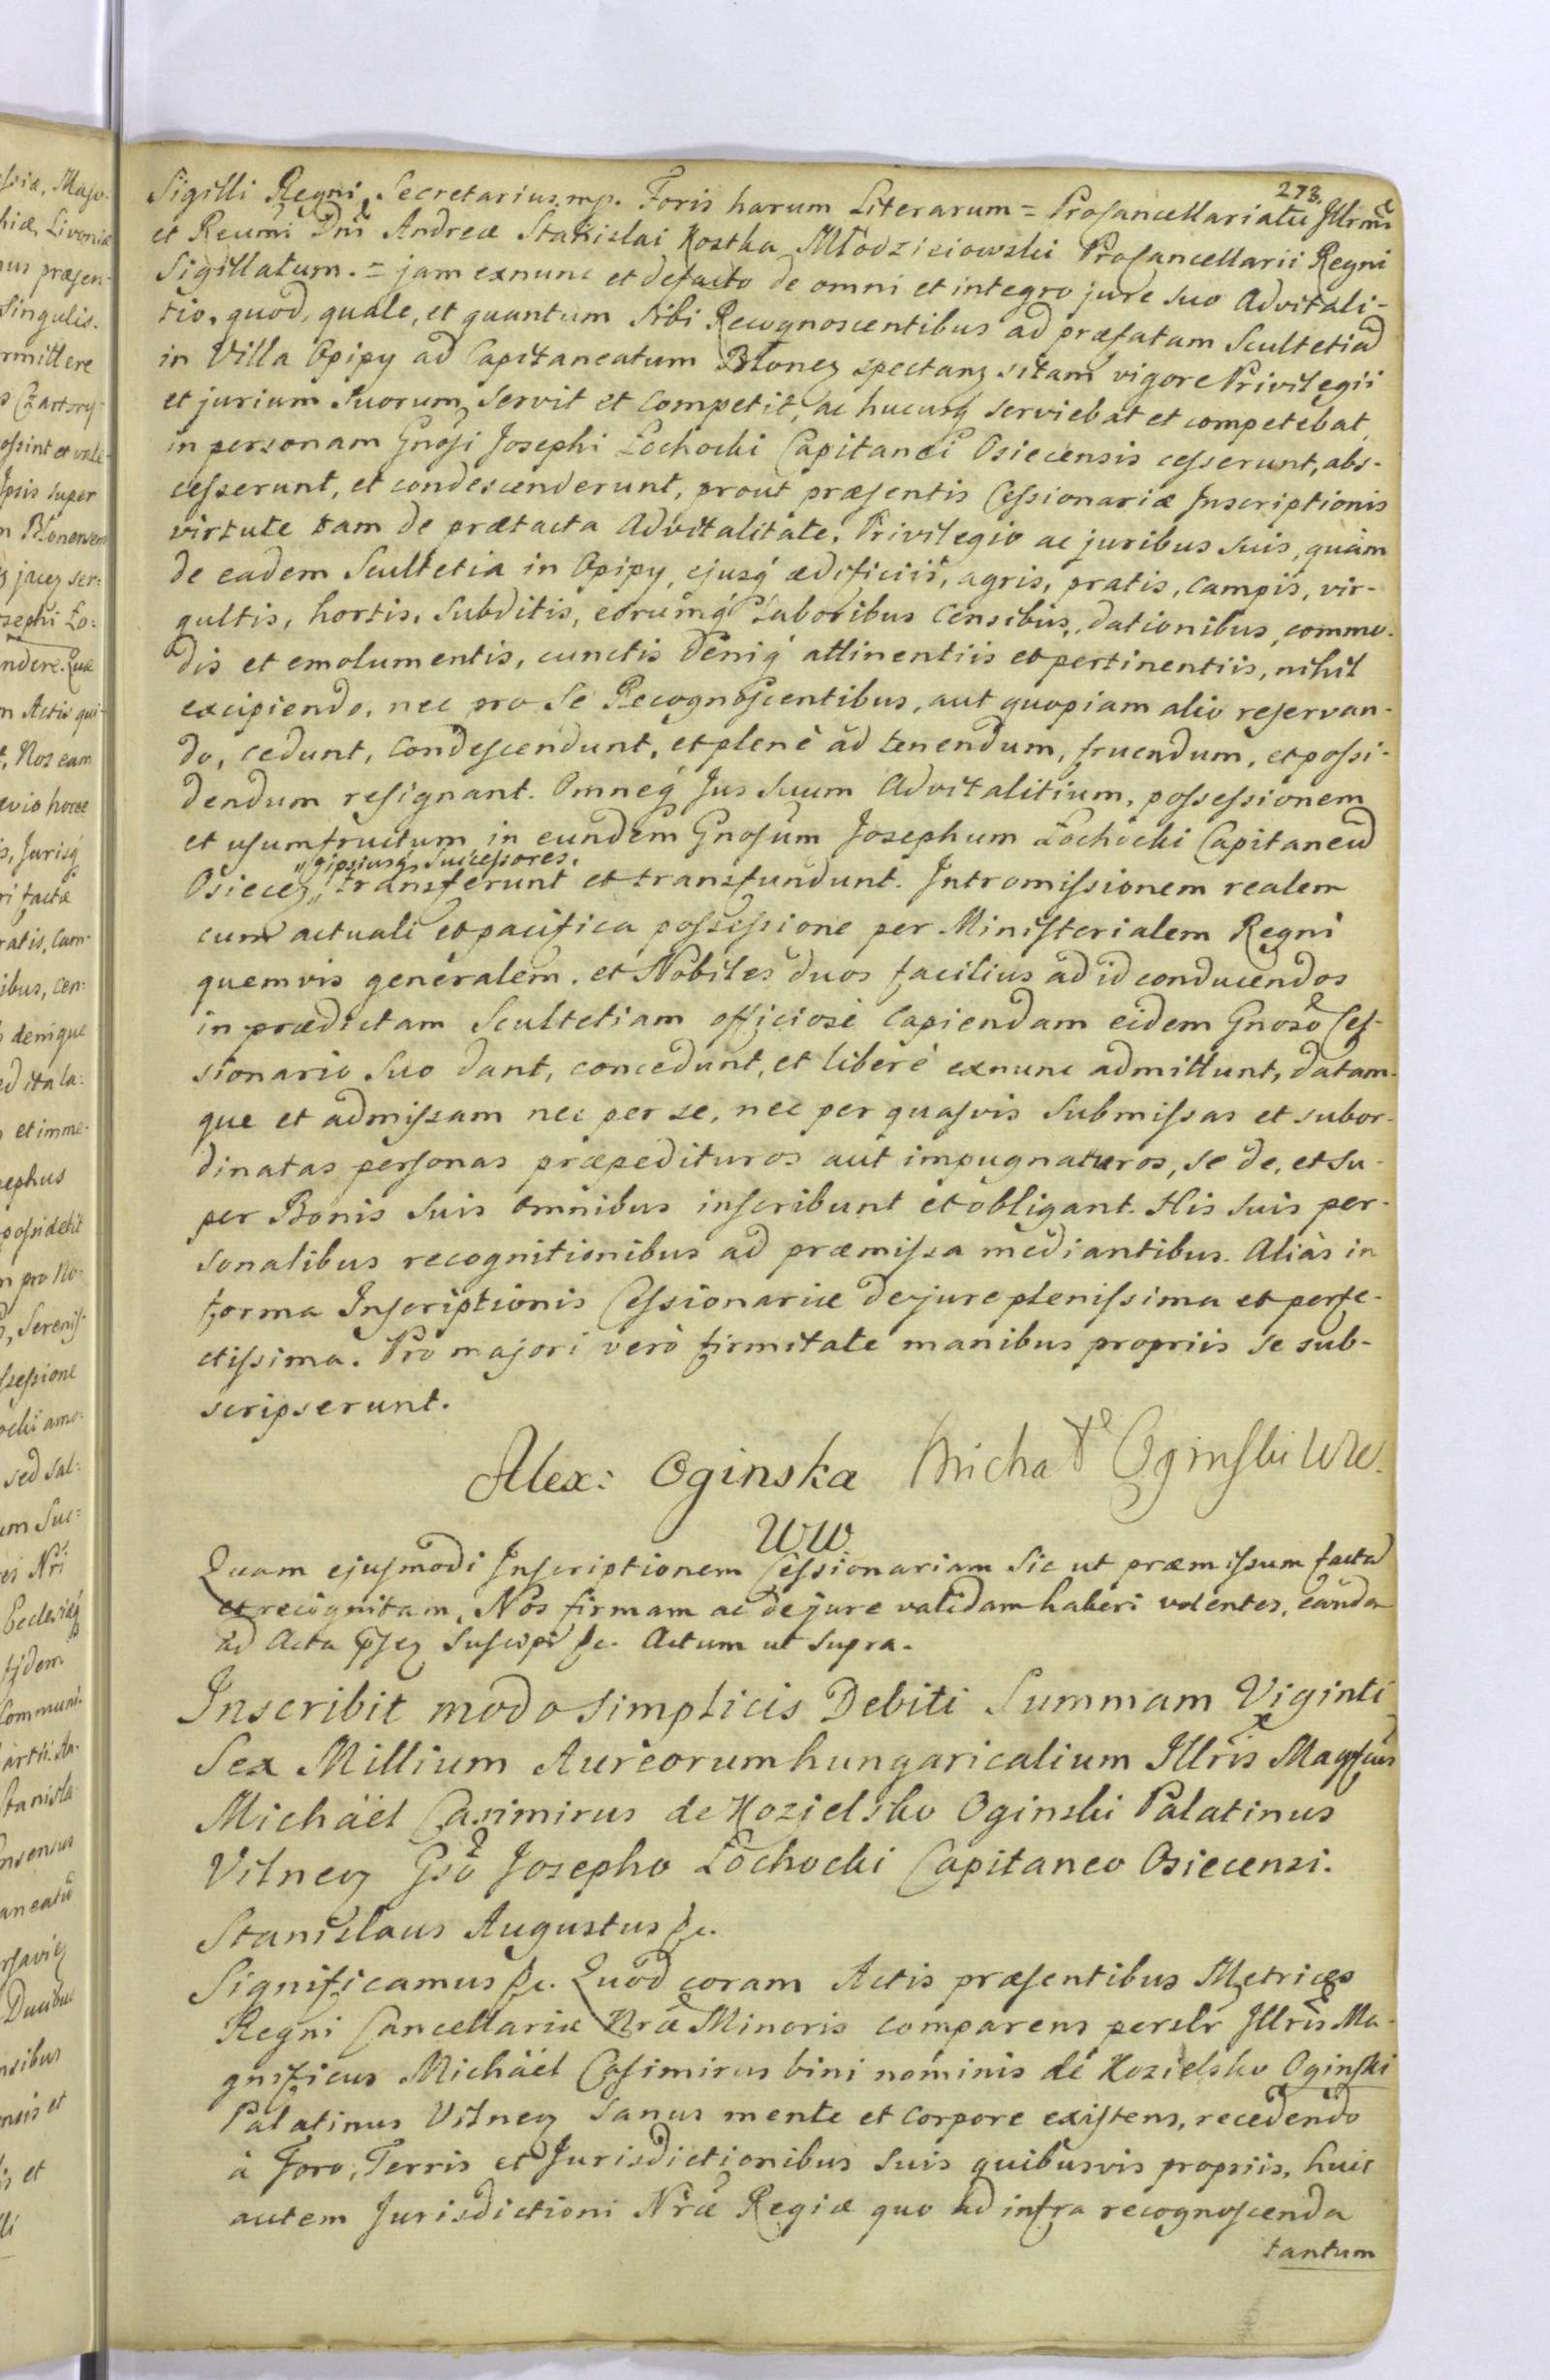 273.
Sigilli Regni Secretarius mp. Foris harum Literarum = Procancellariatu Illrmi
et Reumi Dni Andreæ Stanislai Kostka Młodzieiowski Procancellarii Regni
Sigillatum. = jam exnunc et defacto de omni et integro jure suo Advitali-
tio, quod, quale, et quantum sibi Recognoscentibus ad præfatam Scultetiã
in Villa Opipy ad Capitaneatum Blonez spectanz sitam vigore Privilegii
et jurium suorum servit et competit, ac hucusq serviebat et competebat,
in personam Gnosi Josephi Łochocki Capitanei Osiecensis cesserunt, abs-
cesserunt, et condescenderunt, prout præsentis Cessionariæ Inscriptionis
virtute tam de prætacta Advitalitate, Privilegio ac juribus suis, quàm
de eadem Scultetia in Opipy, ejusq ædificiis, agris, pratis, campis, vir-
gultis, hortis, subditis, eorumq Laboribus censibus, dationibus, commo-
dis et emolumentis, cunctis deniq attinentiis et pertinentiis, nihil
excipiendo, nec pro se Recognoscentibus, aut quopiam alio reservan-
do, cedunt, condescendunt, et plenè ad tenendum, fruendum, et possi-
dendum resignant. Omneq Jus suum Advitalitium, possessionem
et usumfructum in eundem Gnosum Josephum Łochocki Capitaneũ
"ejpsiusq successores.
Osiecez" transferunt et transfundunt. Intromissionem realem
cum actuali et pacifica possessione per Ministerialem Regni
quemvis generalem, et Nobiles duos facilius ad id conducendos
in prædictam Scultetiam officiosè capiendam eidem Gnoso Ces-
sionario suo dant, concedunt, et liberè exnunc admittunt, datam-
que et admissam nec per se, nec per quasvis submissas et subor-
dinatas personas præpedituros aut impugnaturos, se de, et su-
per Bonis suis omnibus inscribunt et obligant. His suis per-
sonalibus recognitionibus ad præmissa mediantibus. Aliàs in
forma Inscriptionis Cessionariæ dejure plenissima et perfe-
ctissima. Pro majori verò firmitate manibus propriis se sub-
scripserunt.
Alex: Oginska Michał Oginski WW.
WW
Quam ejusmodi Inscriptionem Cessionariam sic ut præmissum factã
et recognitam, Nos firmam ac dejure validam haberi volentes, eandẽ
ad Acta pñsez suscipi &c. Actum ut supra.
Inscribit modo simplicis Debiti Summam Viginti
Sex Millium Aureorum hungaricalium Illris Magfcus
Michäel Casimirus de Kozielsko Oginski Palatinus
Vilnez Gso Josepho Łochocki Capitaneo Osiecensi.
Stanislaus Augustus &c.
Significamus &c. Quod coram Actis præsentibus Metrices
Regni Cancellariæ Nræ Minoris comparens perslr Illris Ma-
gnificus Michäel Casimirus bini nominis de Kozielsko Oginski
Palatinus Vilnez sanus mente et corpore existens, recedendo
à Foro, Terris et Jurisdictionibus suis quibusvis propriis, huic
autem Jurisdictioni Nræ Regiæ quo ad infra recognoscenda
tantum